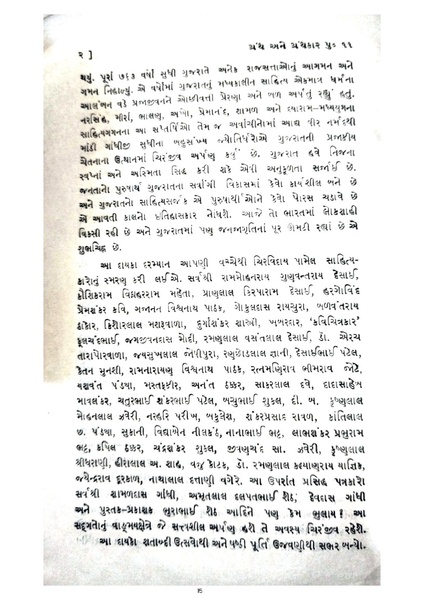 ગ્રંથ અને ગ્રંથકાર પુ૦ ૧૧
૨ ]
થયું. પૂરાં ૭૬૩ વર્ષો સુધી ગુજરાતે અનેક રાજસત્તાઓનું આગમન અને
ગમન નિહાળ્યું. એ વર્ષોમાં ગુજરાતનું મધ્યકાલીન સાહિત્ય એકમાત્ર ધર્મના
આલંબન વડે પ્રજાજીવનને ઓજસ્વતી પ્રેરણા અને બળ અર્પતું રહ્યું હતું.
નરસિંહ, મીરાં, ભાલણ, અખો, પ્રેમાનંદ, શામળ અને દયારામ–મધ્યયુગના
સાહિત્યગગનના આ સપ્તર્ષિઓ તેમ જ અર્વાચીનોમાં આદ્ય વીર નર્મદથી
માંડી ગાંધીજી સુધીના બહુસંખ્ય જ્યોતિર્ધરોએ ગુજરાતની પ્રજાકીય
ચેતનાના ઉત્થાનમાં ચિરંજીવ અર્પણ કર્યું છે. ગુજરાત હવે નિજના
સ્વપ્નાં અને અસ્મિતા સિદ્ધ કરી શકે એવી અનુકૂળતા સર્જાઈ છે.
જનતાનો પુરુષાર્થ ગુજરાતના સર્વાંગી વિકાસમાં કેવો કાર્યશીલ બને છે
અને ગુજરાતનો સાહિત્યસર્જક એ પુરુષાર્થીઓને કેવો પોરસ ચડાવે છે
એ આવતી કાલનો ઇતિહાસકાર નોંધશે. આજે તો ભારતમાં લોકશાહી
વિકસી રહી છે અને ગુજરાતમાં પણ જનજાગૃતિનાં પૂર ઊમટી રહ્યાં છે એ
શુભચિહ્ન છે.
આ દાયકા દરમ્યાન આપણી વચ્ચેથી ચિરવિદાય પામેલ સાહિત્ય-
કારોનું સ્મરણ કરી લઈએ. સર્વશ્રી રામમોહનરાય જસવંતરાય દેસાઈ,
કૌશિકરામ વિઘ્નહરરામ મહેતા, પ્રાણલાલ કિરપારામ દેસાઈ, હરગોવિંદ
પ્રેમશંકર કવિ, ગજાનન વિશ્વનાથ પાઠક, ગોકુલદાસ રાયચુરા, બળવંતરાય
ઠાકોર, કિશોરલાલ મશરૂવાળા, દુર્ગાશંકર શાસ્ત્રી, ખબરદાર, 'કવિચિત્રકાર'
ફૂલચંદભાઈ, જગજીવનદાસ મોદી, રમણલાલ વસંતલાલ દેસાઈ, ડૉ. એરચ
તારાપોરવાળા, જયસુખલાલ જોષીપુરા, રણછોડલાલ જ્ઞાની, દેસાઈભાઈ પટેલ,
કેતન મુનશી, રામનારાયણ વિશ્વનાથ પાઠક, રત્નમણિરાવ ભીમરાવ જોટે,
યશવંત પંડ્યા, મસ્તફકીર, અનંત ઠક્કર, સાકરલાલ દવે, દાદાસાહેબ
માવલંકર, ચતુરભાઈ શંકરભાઈ પટેલ, બચુભાઈ શુકલ, દી. બ. કૃષ્ણલાલ
મોહનલાલ ઝવેરી, નરહરિ પરીખ, બકુલેશ, શંકરપ્રસાદ રાવળ, કાંતિલાલ
છ. પંડ્યા, સુકાની, વિદ્યાબેન નીલકંઠ, નાનાભાઈ ભટ્ટ, લાભશંકર પ્રભુરામ
ભટ્ટ, કપિલ ઠક્કર, ચંદ્રશંકર શુકલ, જીવણચંદ સા. ઝવેરી, કૃષ્ણલાલ
શ્રીધરાણી, હીરાલાલ અ. શાહ, વજુ કોટક, ડૉ. રમણલાલ કલ્યાણરાય યાજ્ઞિક,
જયેન્દ્રરાવ દૂરકાળ, નાથાલાલ દત્તાણી વગેરે. આ ઉપરાંત પ્રસિદ્ધ પત્રકારો
સર્વશ્રી શામળદાસ ગાંધી, અમૃતલાલ દલપતભાઈ શેઠ, દેવદાસ ગાંધી
અને પુસ્તક–પ્રકાશક ભુરાભાઈ શેઠ આદિને પણ કેમ ભુલાય ? આ
સદ્‌ગતોનું વાઙ્‌મયક્ષેત્રે જે સત્ત્વશીલ અર્પણ હશે તે અવશ્ય ચિરંજીવ રહેશે.
આ દાયકા શતાબ્દી ઉત્સવોથી અને ષષ્ટી પૂર્તિ ઉજવણીથી સભર બન્યો.